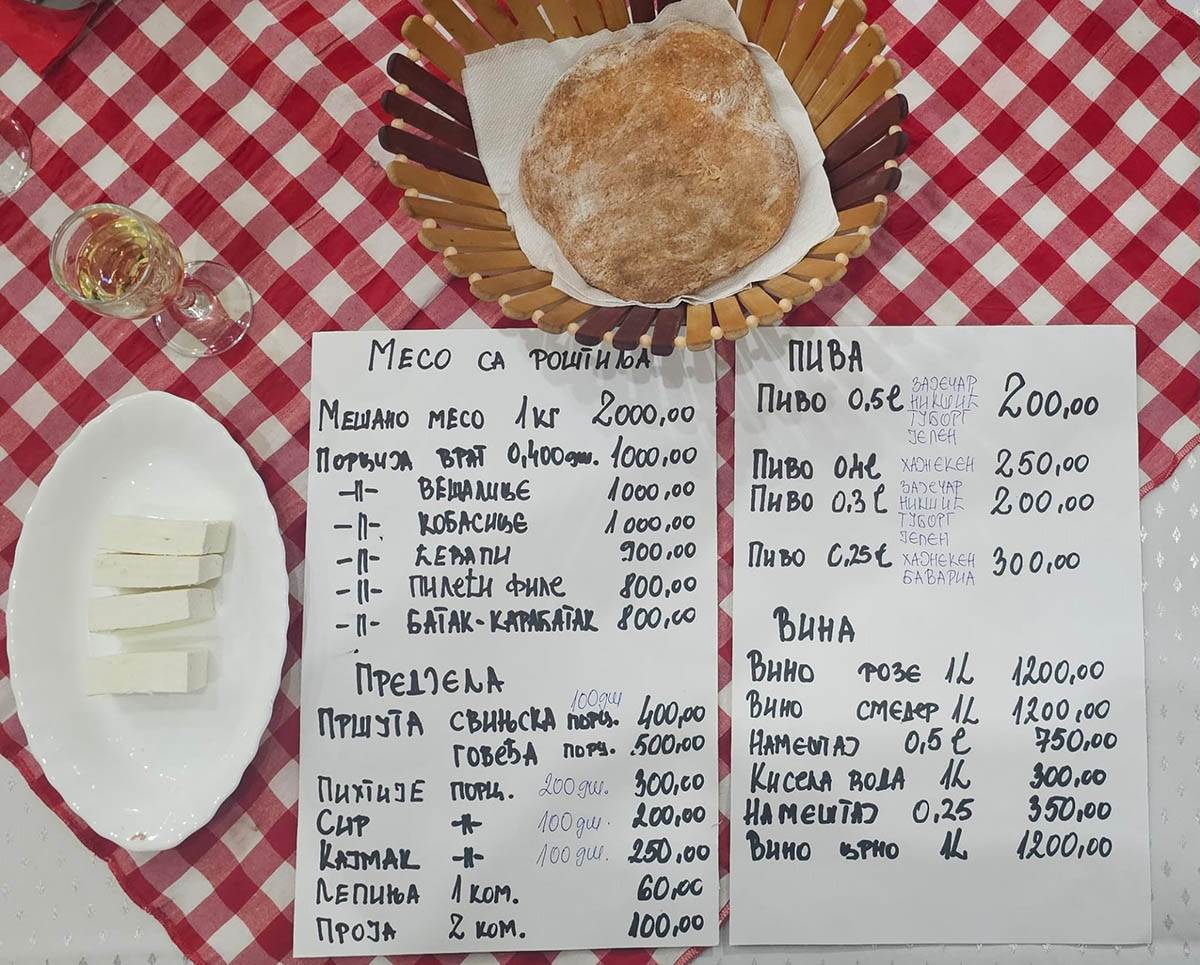 МЕСО СА РОШТИЉА
МЕШАНО МЕСО 1КГ 2000,00
ПОРЦИЈА ВРАТ 0,400дш. 1000,00
-||- ВЕШАЛИЦЕ 1000,00
-||- КОБАСИЦЕ 1000,00
-||- ЋЕВАПИ 900,00
-||- ПИЛЕЋИ ФИЛЕ 800,00
-||- БАТАК-КАРАБАТАК 800,00
ПРЕДЈЕЛА
100дш
ПРШУТА СВИЊСКА ПОРЦ. 400,00
ГОВЕЂА ПОРЦ. 500,00
ПИХТИЈЕ ПОРЦ. 200дш. 300,00
СИР -||- 100дш. 200,00
КАЈМАК -||- 100дш. 250,00
ЛЕПИЊА 1 КОМ. 60,00
ПРОЈА 2 КОМ. 100,00
ПИВА
ПИВО 0,5l ЗАЈЕЧАР НИКШИЋ ТУБОРГ ЈЕЛЕН 200,00
ПИВО 0,4l ХАЈНЕКЕН 250,00
ПИВО 0,3l ЗАЈЕЧАР НИКШИЋ ТУБОРГ ЈЕЛЕН 200,00
ПИВО 0,25l ХАЈНЕКЕН БАВАРИА 300,00
ВИНА
ВИНО РОЗЕ 1L 1200,00
ВИНО СМЕДЕР 1L 1200,00
НАМЕШТАЈ 0,5l 750,00
КИСЕЛА ВОДА 1L 300,00
НАМЕШТАЈ 0,25 350,00
ВИНО ЦРНО 1L 1200,00